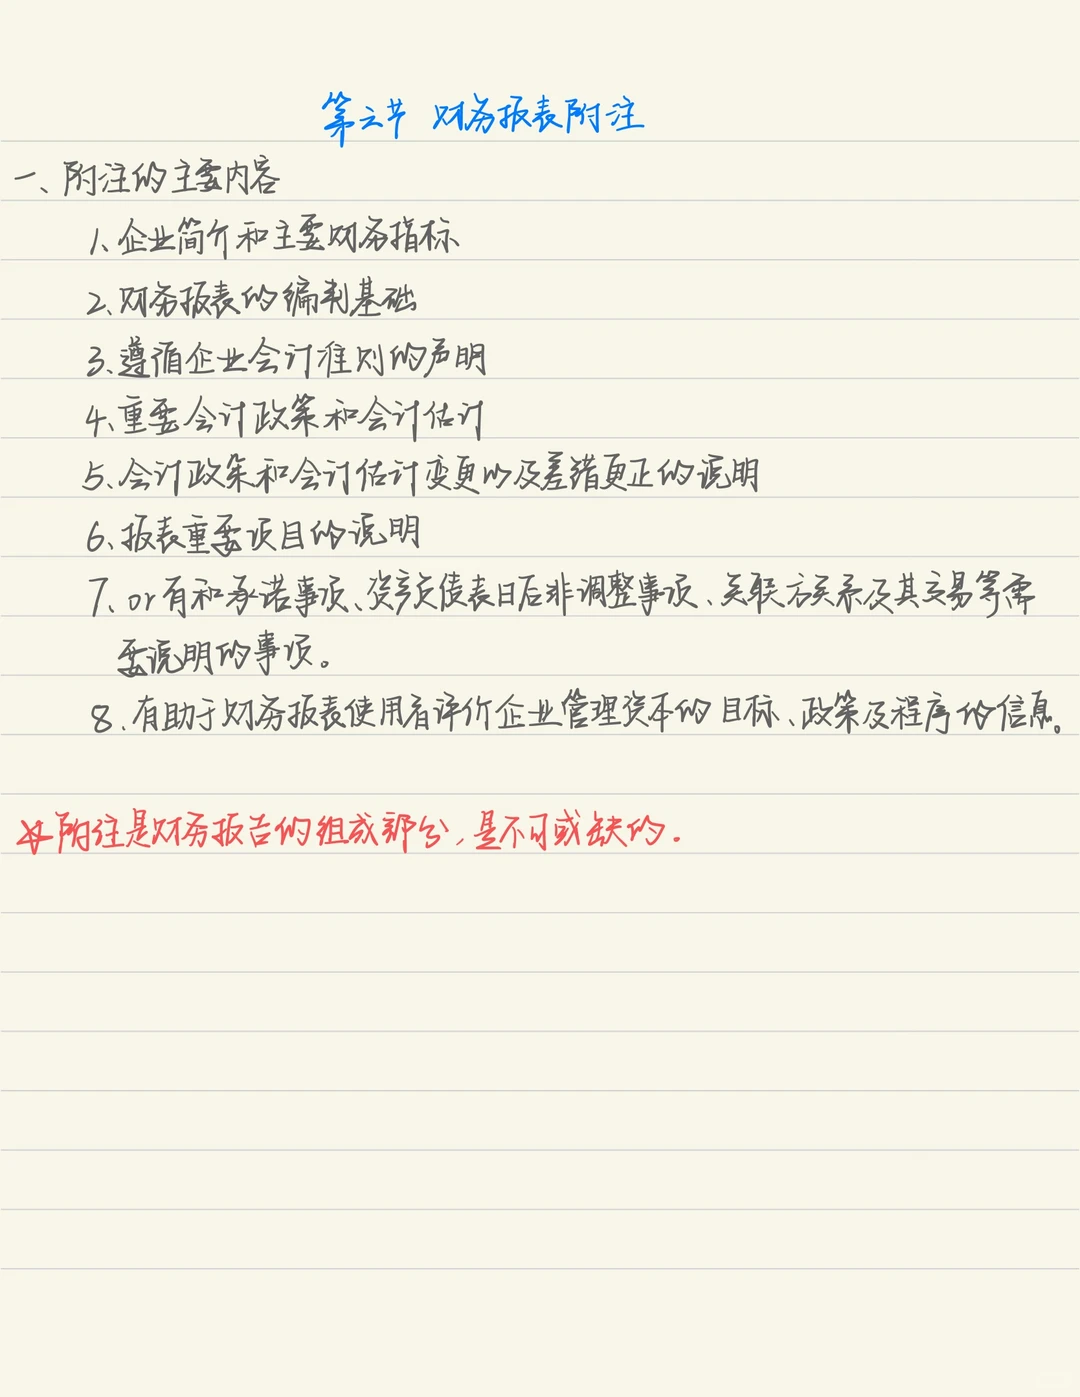 第六节 财务报表附注
一、附注的主要内容
1、企业简介和主要财务指标
2、财务报表的编制基础
3、遵循企业会计准则的声明
4、重要会计政策和会计估计
5、会计政策和会计估计变更以及差错更正的说明
6、报表重要项目的说明
7、or有和承诺事项、资产负债表日后非调整事项、关联方关系及其交易等需
要说明的事项。
8、有助于财务报表使用者评价企业管理资本的目标、政策及程序的信息。
☆附注是财务报告的组成部分,是不可或缺的.